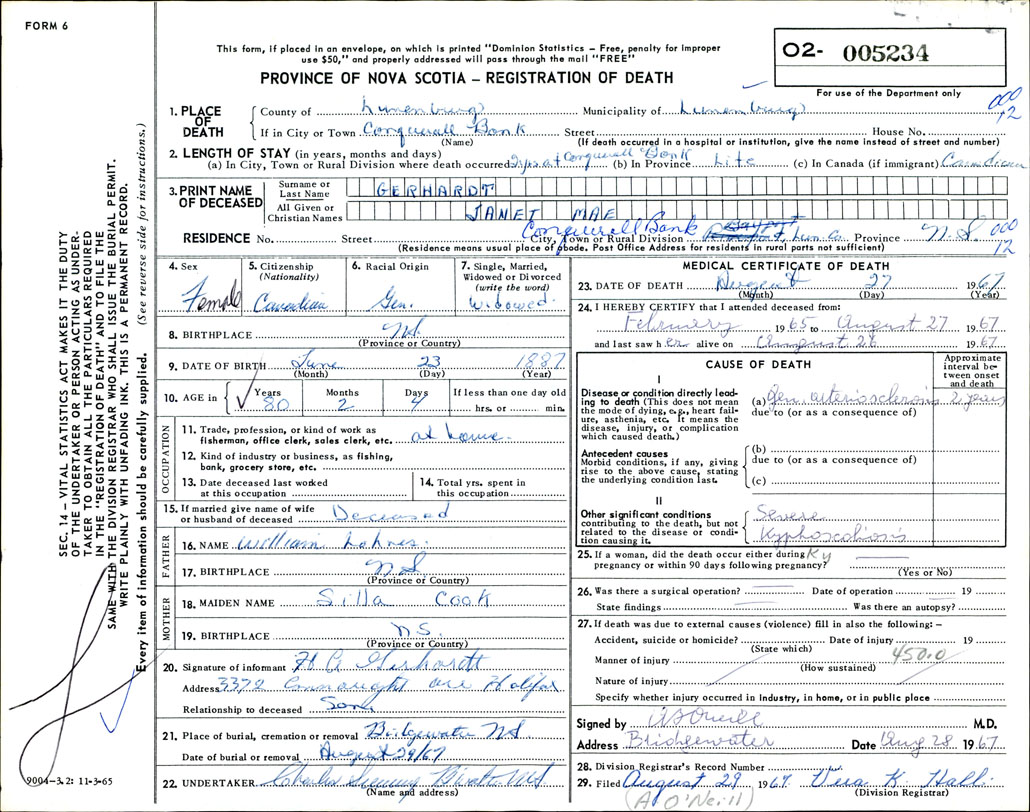 FORM 6
This form, if placed in an envelope, on which is printed "Dominion Statistics – Free, penalty for improper
use $50," and properly addressed will pass through the mail "FREE"
PROVINCE OF NOVA SCOTIA – REGISTRATION OF DEATH
O2- 005234
For use of the Department only
000
12
1. PLACE OF DEATH
County of Lunenburg Municipality of Lunenburg
If in City or Town Conquerall Bank Street House No.
(Name) (If death occurred in a hospital or institution, give the name instead of street and number)
2. LENGTH OF STAY (in years, months and days)
(a) In City, Town or Rural Division where death occurred 2 yrs at Conquerall Bank (b) In Province Life (c) In Canada (if immigrant) Canadian
3. PRINT NAME OF DECEASED
Surname or Last Name GERHARDT
All Given or Christian Names JANET MAE
RESIDENCE No. Street Conquerall Bank City, Town or Rural Division Lun. Co. Province N.S. 000
12
(Residence means usual place of abode. Post Office Address for residents in rural parts not sufficient)
4. Sex Female
5. Citizenship (Nationality) Canadian
6. Racial Origin Ger.
7. Single, Married, Widowed or Divorced (write the word) Widowed.
8. BIRTHPLACE NS
(Province or Country)
9. DATE OF BIRTH June 23 1887
(Month) (Day) (Year)
10. AGE in Years 80 Months 2 Days 4 If less than one day old hrs. or min.
OCCUPATION
11. Trade, profession, or kind of work as fisherman, office clerk, sales clerk, etc. at home.
12. Kind of industry or business, as fishing, bank, grocery store, etc.
13. Date deceased last worked at this occupation
14. Total yrs. spent in this occupation
15. If married give name of wife or husband of deceased Deceased
FATHER
16. NAME William Lohnes
17. BIRTHPLACE NS
(Province or Country)
MOTHER
18. MAIDEN NAME Silla Cook
19. BIRTHPLACE NS.
(Province or Country)
20. Signature of informant H A Gerhardt
Address 3372 Connaught ave Halifax
Relationship to deceased Son
21. Place of burial, cremation or removal Bridgewater NS
Date of burial or removal August 29/67
22. UNDERTAKER Charles
(Name and address)
MEDICAL CERTIFICATE OF DEATH
23. DATE OF DEATH August 27 1967
(Month) (Day) (Year)
24. I HEREBY CERTIFY that I attended deceased from:
February 1965 to August 27 1967
and last saw her alive on August 26 1967
CAUSE OF DEATH
Approximate interval between onset and death
I
Disease or condition directly leading to death (This does not mean the mode of dying, e.g., heart failure, asthenia, etc. It means the disease, injury, or complication which caused death.)
(a) Gen. arteriosclerosis 2 years
due to (or as a consequence of)
Antecedent causes
Morbid conditions, if any, giving rise to the above cause, stating the underlying condition last.
(b)
due to (or as a consequence of)
(c)
II
Other significant conditions contributing to the death, but not related to the disease or condition causing it.
Severe
Kyphoscoliosis
25. If a woman, did the death occur either during pregnancy or within 90 days following pregnancy? Ky
(Yes or No)
26. Was there a surgical operation? Date of operation 19
State findings Was there an autopsy?
27. If death was due to external causes (violence) fill in also the following: –
Accident, suicide or homicide? Date of injury 19
(State which)
Manner of injury 450.0
(How sustained)
Nature of injury
Specify whether injury occurred in industry, in home, or in public place
Signed by M.D.
Address Bridgewater Date Aug 28 1967
28. Division Registrar's Record Number
29. Filed August 29 1967 Vera K. Hall
(Division Registrar)
(A O'Neill)
SEC. 14 – VITAL STATISTICS ACT MAKES IT THE DUTY
OF THE UNDERTAKER OR PERSON ACTING AS UNDER-
TAKER TO OBTAIN ALL THE PARTICULARS REQUIRED
IN THE "REGISTRATION OF DEATH" AND TO FILE THE
SAME WITH THE DIVISION REGISTRAR WHO SHALL ISSUE THE BURIAL PERMIT.
WRITE PLAINLY WITH UNFADING INK. THIS IS A PERMANENT RECORD.
Every item of information should be carefully supplied. (See reverse side for instructions.)
9004-3.2: 11-3-65